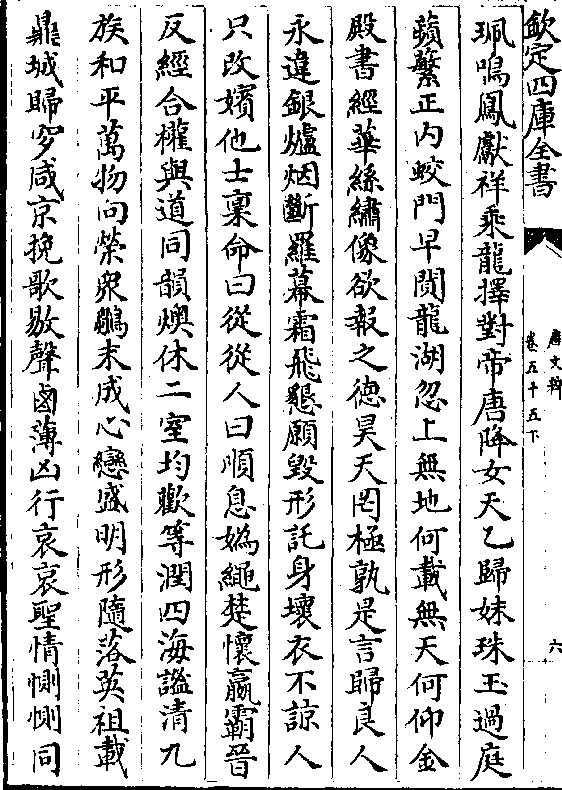 欽定四庫全書
唐文粹
卷五十五下
六
珮鳴鳳獻祥乘龍擇對帝唐降女天乙歸妹珠玉過庭
蘋蘩正内蛟門早閲龍湖忽上無地何載無天何仰金
殿書經華絲繡像欲報之徳昊天罔極孰是言歸良人
永違銀爐烟斷羅幕霜飛懇願毁形託身壞衣不諒人
只改嬪他士稟命曰從從人曰順息媯繩楚懷嬴霸晉
反經合權與道同韻燠休二室均歡等潤四海謐清九
族和平萬物向榮衆鶵未成心戀盛明形隨落英祖載
鼎城歸穸咸京挽歌敭聲鹵薄凶行哀哀聖情惻惻同